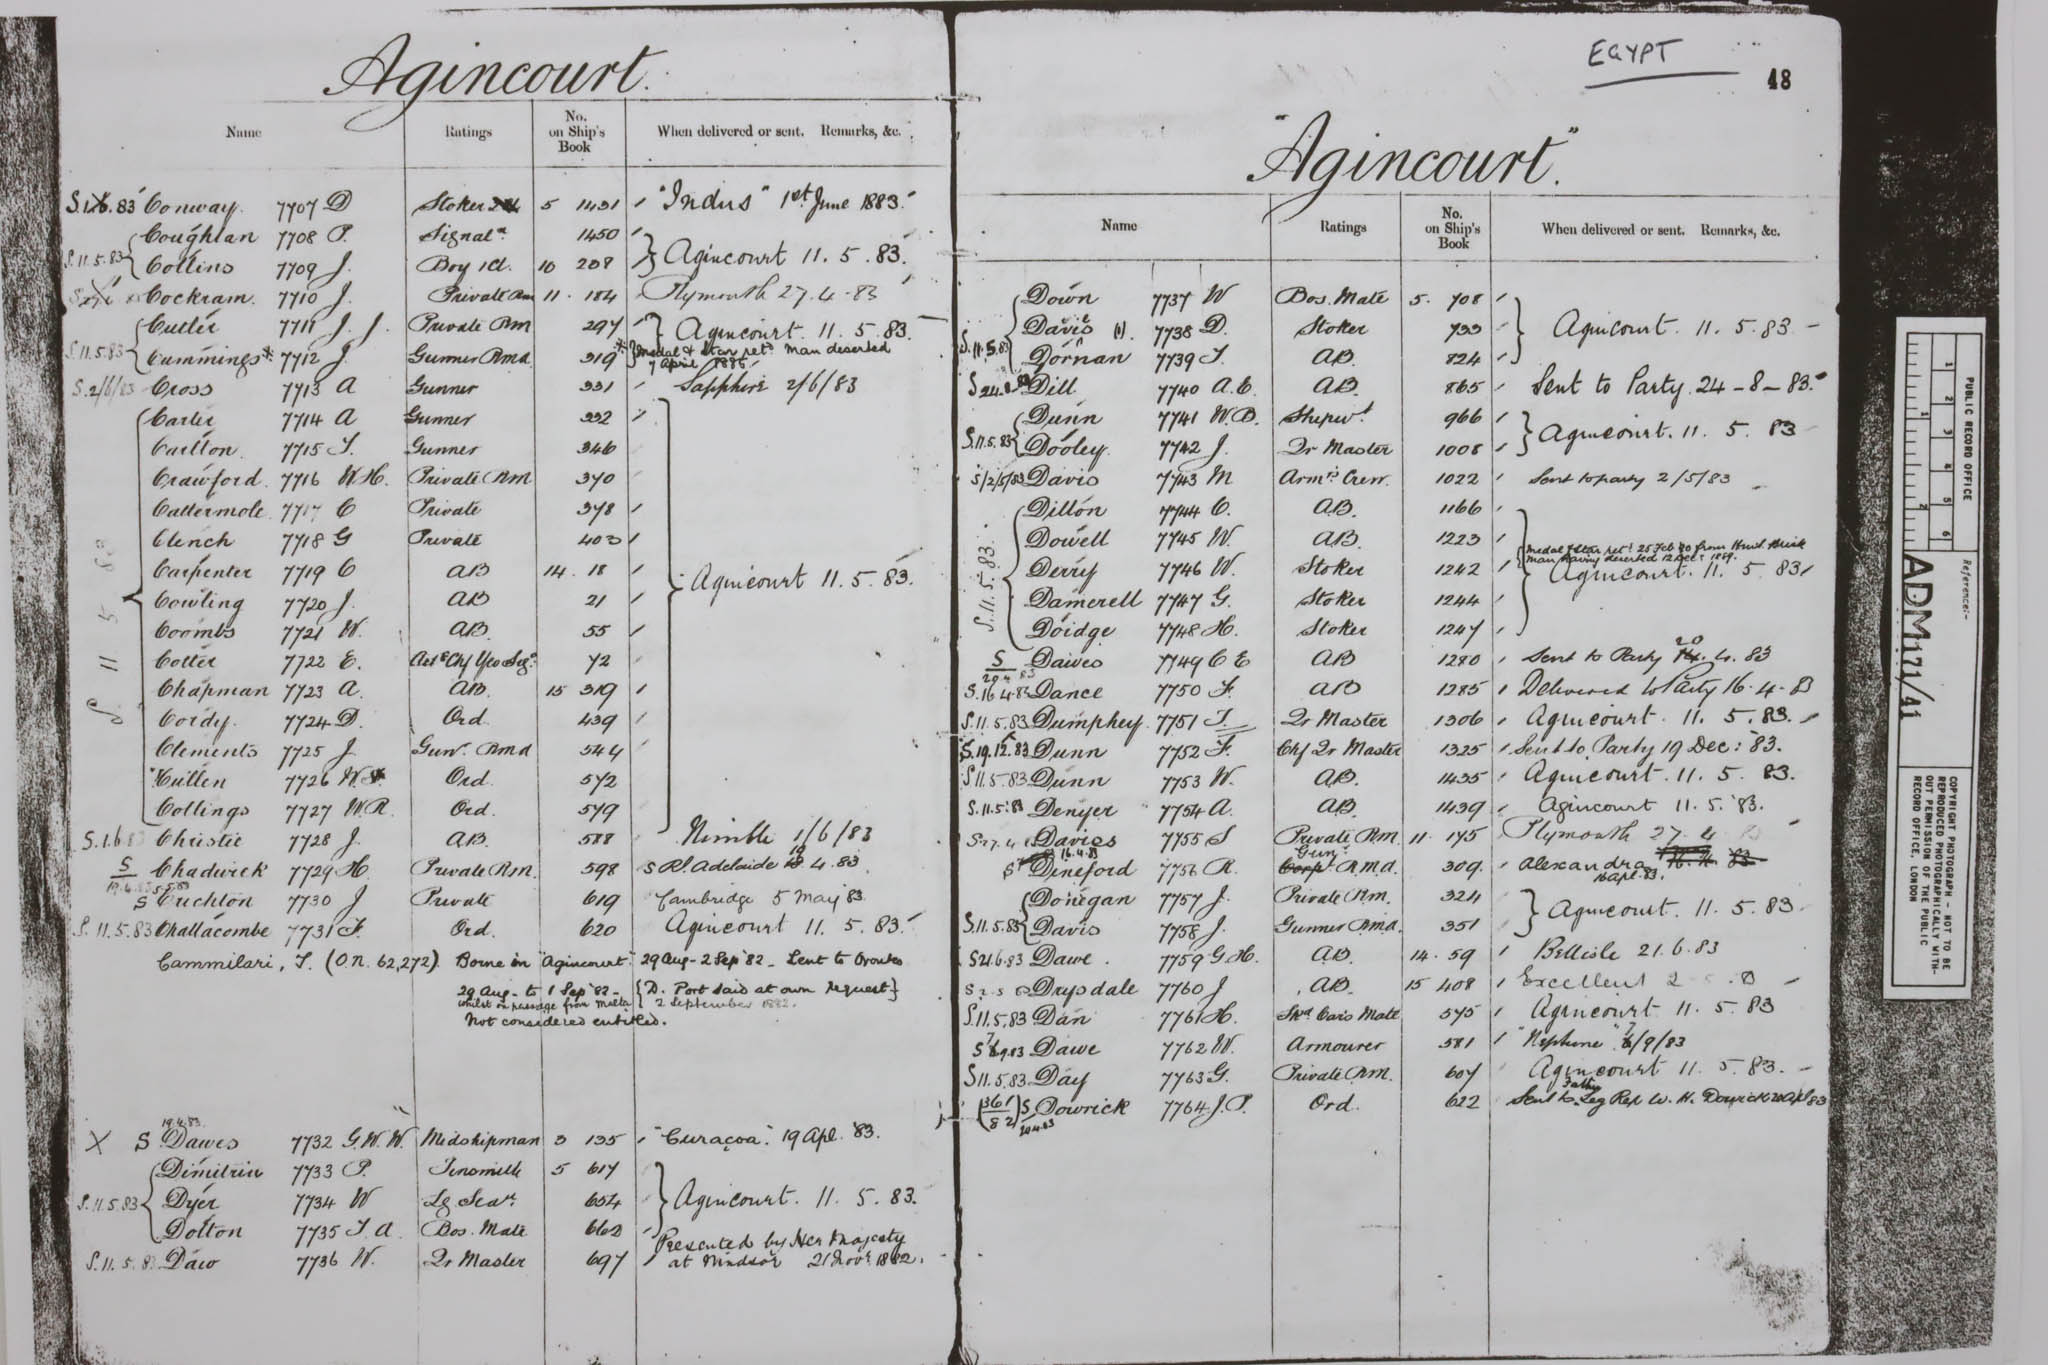 Agincourt.
Name Ratings No. on Ship's Book When delivered or sent. Remarks, &c.
S.1.6.83 Conway. 7707 D Stoker 5 1431 "Indus" 1st June 1883.
Coughlan 7708 P. Signaln 1450
S.11.5.83 Collins 7709 J. Boy 1Cl. 10 208 Agincourt 11.5.83.
Cockram. 7710 J. Private Rm 11. 184 Plymouth 27.4.83
Cutler 7711 J.J. Private Rm 297 Agincourt. 11.5.83.
S.11.5.83 Cummings* 7712 J. Gunner Rma 319 * Medal & Star retd. Man deserted 7 April 1885.
S.2/6/83 Cross 7713 A Gunner 331 Sapphire 2/6/83
Carter 7714 A Gunner 332
Carlton. 7715 T. Gunner 346
Crawford. 7716 W.H. Private Rm 370
Cattermole 7717 C Private 378
Clench 7718 G Private 403
Carpenter 7719 C AB 14. 18
S 11 5 83 Agincourt 11.5.83.
Cowling 7720 J. AB 21
Coombs 7721 W. AB. 55
Cotter 7722 E. 72
Chapman 7723 A. AB. 15 319
Cordy. 7724 D. Ord. 439
Clements 7725 J. Gunr. Rma 544
Cullen 7726 Ord. 572
Collings 7727 W.R. Ord. 579
S.1.6.83 Christie 7728 J. AB. 588 Nimble 1/6/83
S Chadwick 7729 H. Private Rm. 598 S Rl. Adelaide 4.83.
S 7730 J Private 619 Cambridge 5 May 83.
S.11.5.83 Challacombe 7731 F. Ord. 620 Agincourt 11.5.83.
Cammilari, T. (O.N. 62,272) Borne in "Agincourt" 29 Aug - 2 Sep '82 - Sent to Orontes
29 Aug - to 1 Sep '82 - {D. Port Said at own request}
whilst on passage from Malta 2 September 1882.
Not considered entitled.
19.4.83.
X S Dawes 7732 G.W.W. Midshipman 3 135 "Curaçoa". 19 Apl. '83.
Dimitriu 7733 P. Tinsmith 5 617
S.11.5.83 Dyer 7734 W Lg Sean. 654 Agincourt. 11.5.83.
Dolton 7735 T.A. Bos. Mate 662
S.11.5.83 Daw 7736 W. Qr Master 697 Presented by Her Majesty at Windsor 21 Novr 1882.
EGYPT
48
"Agincourt".
Name Ratings No. on Ship's Book When delivered or sent. Remarks, &c.
Down 7737 W Bos. Mate 5. 708
S.11.5.83 Davis (1). 7738 D. Stoker 733 Agincourt. 11.5.83 -
Dornan 7739 T. AB. 824
S 24.8.83 Dill 7740 A.E. AB. 865 Sent to Party. 24-8-83.
Dunn 7741 W.B. Shipwt 966
S.11.5.83 Dooley. 7742 J. Qr Master 1008 Agincourt. 11.5.83
S/2/5/83 Davis 7743 M Armrs Crew. 1022 Sent to party 2/5/83
Dillon 7744 C. AB. 1166
Dowell 7745 W. AB. 1223
Medal & Star retd. 25 Feb 90 from man having deserted 12 Decr 1889.
S.11.5.83. Derry 7746 W. Stoker 1242 Agincourt. 11.5.83
Damerell 7747 G. Stoker 1244
Doidge 7748 H. Stoker 1247
S Dawes 7749 C E AB 1280 Sent to Party 20.4.83
S.16.4.83 Dance 7750 F. AB 1285 Delivered to Party 16.4.83
S.11.5.83 Dumphey. 7751 T. Qr Master 1306 Agincourt. 11.5.83.
S.19.12.83 Dunn 7752 F. Chf Qr Master 1325 Sent to Party 19 Dec: '83.
S.11.5.83 Dunn 7753 W. AB. 1435 Agincourt. 11.5.83.
S.11.5.83 Denyer 7754 A. AB. 1439 Agincourt 11.5.83.
Davies 7755 S Private Rm. 11. 175 Plymouth 27.4
16.4.83
S Dineford 7756 R. Gunr. R.M.A. 309. Alexandra 16 Apl. 83.
Donegan 7757 J. Private Rm. 324
S.11.5.83 Davis 7758 J. Gunner Rma. 351 Agincourt. 11.5.83
S 21.6.83 Dawe. 7759 G.H. AB. 14. 59 Bellisle 21.6.83
Drysdale 7760 J AB. 15 408 Excellent
S.11.5.83 Dan 7761 H. 575 Agincourt 11.5.83
S 7.9.83 Dawe 7762 W. Armourer 581 "Neptune". 7/9/83
S 11.5.83 Day 7763 G. Private Rm. 607 Agincourt 11.5.83. -
(361/82) S. 20.4.83 Dowrick 7764 J.P. Ord. 622 Sent to Father Leg Rep W. H. Dowrick 20 Apl 83
PUBLIC RECORD OFFICE
1 2 3 4 5 6
1 2
Reference:-
ADM 171/41
COPYRIGHT PHOTOGRAPH - NOT TO BE REPRODUCED PHOTOGRAPHICALLY WITHOUT PERMISSION OF THE PUBLIC RECORD OFFICE, LONDON